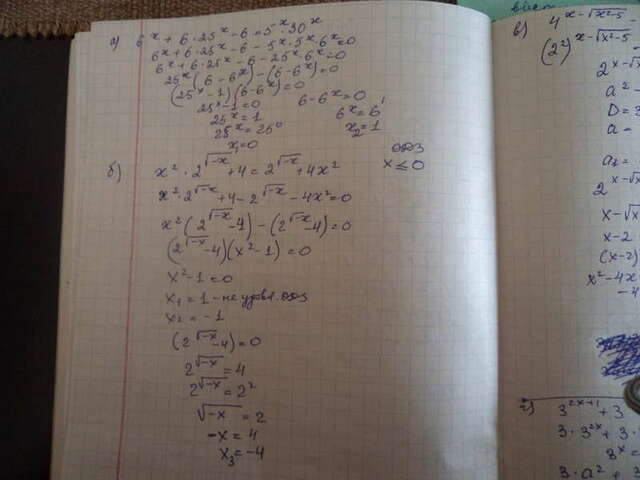 а) 6^x + 6·25^x - 6 = 5^x·30^x
6^x + 6·25^x - 6 - 5^x·5^x·6^x = 0
6^x + 6·25^x - 6 - 25^x·6^x = 0
25^x(6 - 6^x) - (6 - 6^x) = 0
(25^x - 1)(6 - 6^x) = 0
25^x - 1 = 0    6 - 6^x = 0
25^x = 1    6^x = 6^1
25^x = 25^0    x₂ = 1
x₁ = 0
б) x²·2^√-x + 4 = 2^√-x + 4x²    ОДЗ
x ≤ 0
x²·2^√-x + 4 - 2^√-x - 4x² = 0
x²(2^√-x - 4) - (2^√-x - 4) = 0
(2^√-x - 4)(x² - 1) = 0
x² - 1 = 0
x₁ = 1 - не удовл. ОДЗ
x₂ = -1
(2^√-x - 4) = 0
2^√-x = 4
2^√-x = 2²
√-x = 2
-x = 4
x₃ = -4
в) 4^x-√x²-5
(2²)^x-√x²-5
2^x-√x
a² -
D =
a =
a₁ =
2^x-√x
x - √x
x - 2
(x - 2)
x² - 4x
-4
г) 3^2x+1 + 3
3·3^2x + 3·
3^x =
3·a² + 3